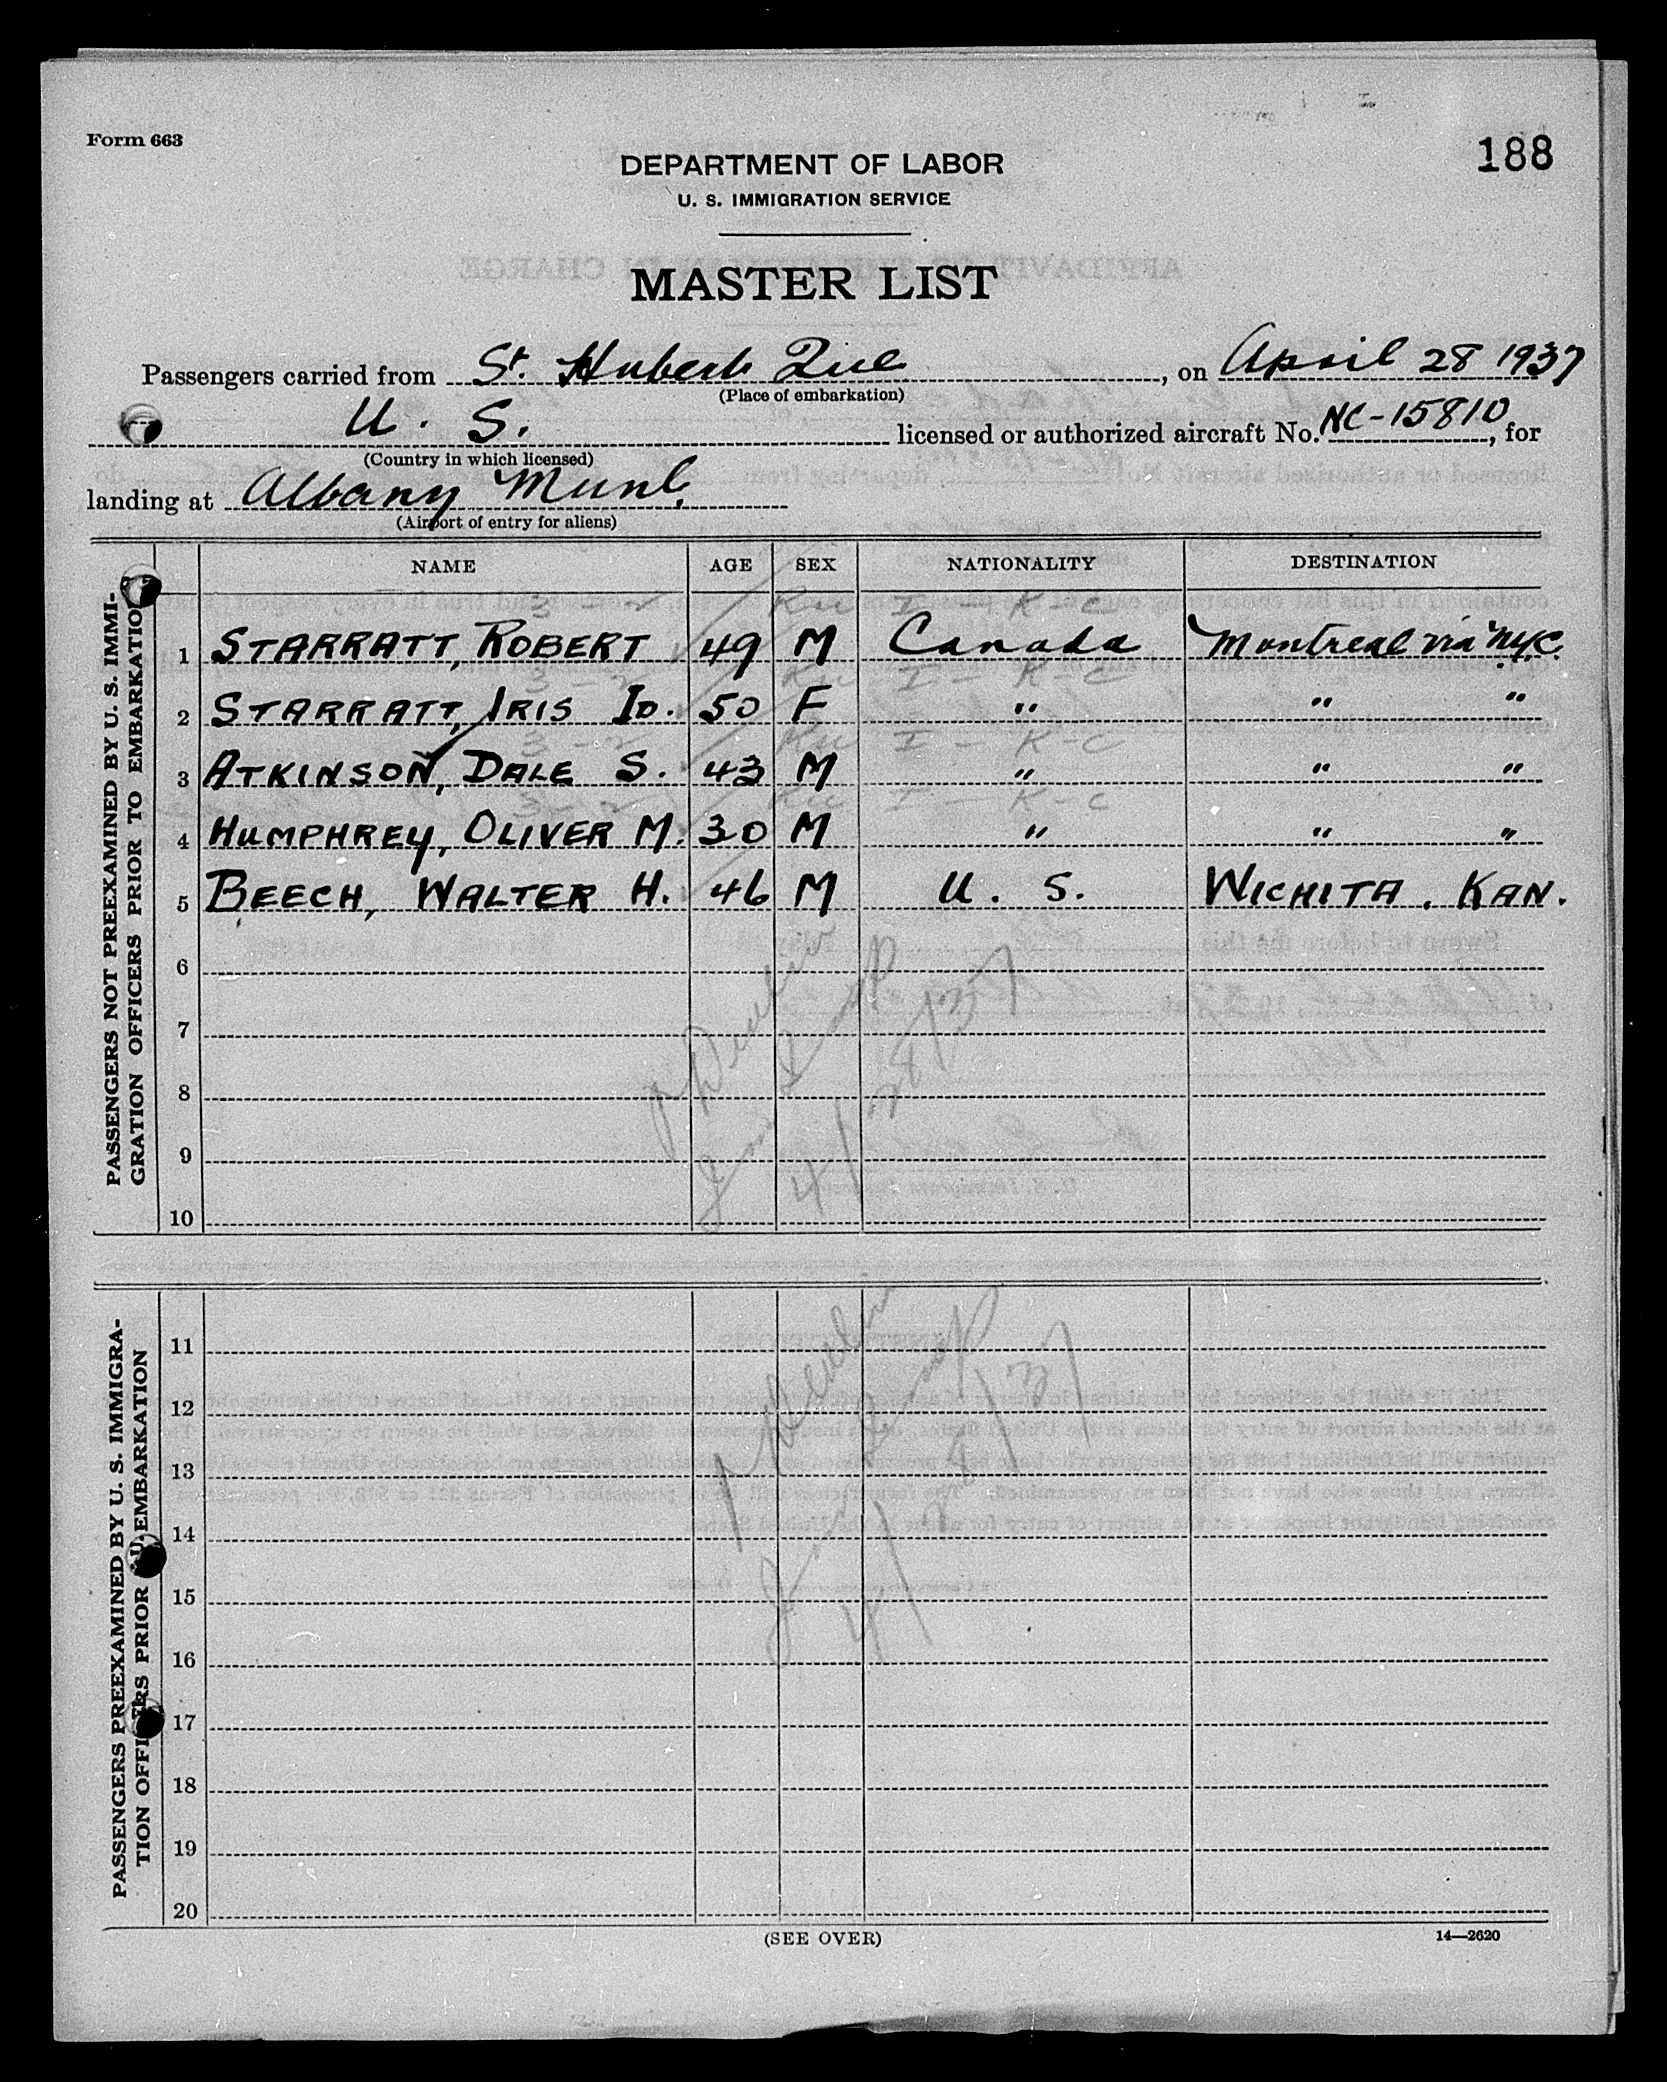 Form 663
188
DEPARTMENT OF LABOR
U. S. IMMIGRATION SERVICE
MASTER LIST
Passengers carried from St. Hubert Que , on April 28 1937
(Place of embarkation)
U. S. licensed or authorized aircraft No. NC-15810, for
(Country in which licensed)
landing at Albany Munl.
(Airport of entry for aliens)
NAME AGE SEX NATIONALITY DESTINATION
PASSENGERS NOT PREEXAMINED BY U. S. IMMI-
GRATION OFFICERS PRIOR TO EMBARKATION
3-2 I - K-C
1 STARRATT, ROBERT 49 M Canada Montreal via N.Y.C.
3-2 I - K-C
2 STARRATT, IRIS ID. 50 F " " "
3-2 I - K-C
3 ATKINSON, DALE S. 43 M " " "
3-2 I - K-C
4 HUMPHREY, OLIVER M. 30 M " " "
5 BEECH, WALTER H. 46 M U. S. WICHITA. KAN.
6
7
8
9
10
4/28/37
PASSENGERS PREEXAMINED BY U. S. IMMIGRA-
TION OFFICERS PRIOR EMBARKATION
11
12
13
14
15
16
17
18
19
20
4/28/37
(SEE OVER)
14—2620